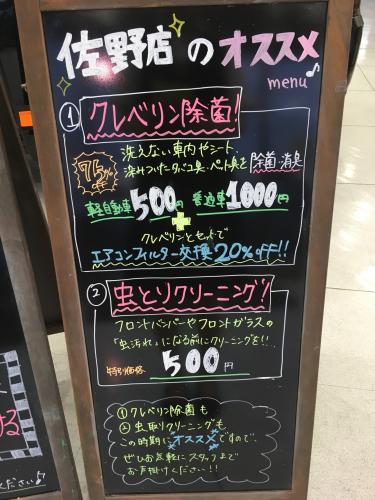 佐野店のオススメ
menu♪
① クレベリン除菌!
75%OFF
洗えない車内やシート、
染みついたタバコ臭・ペット臭を除菌・消臭
軽自動車500円 普通車1000円
+
クレベリンとセットで
エアコンフィルター交換20%OFF!!
② 虫とりクリーニング!
フロントバンパーやフロントガラスの
「虫汚れ」になる前にクリーニングを!!
特別価格 500円
①クレベリン除菌も
②虫取りクリーニングも
この時期にオススメですので、
ぜひお気軽にスタッフまで
お声掛けください!!
る
ください♪